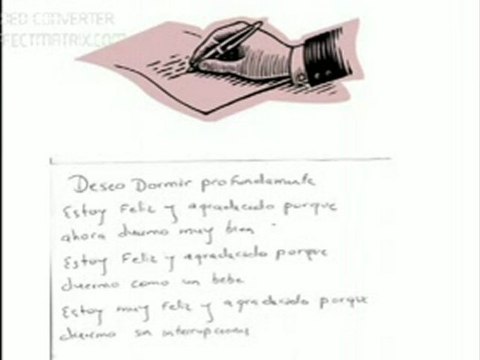 RED CONVERTER
FECTMATRIX.COM
Deseo Dormir profundamente
Estoy Feliz y agradecido porque
ahora duermo muy bien
Estoy Feliz y agradecido porque
duermo como un bebe
Estoy muy Feliz y agradecido porque
duermo sin interrupciones